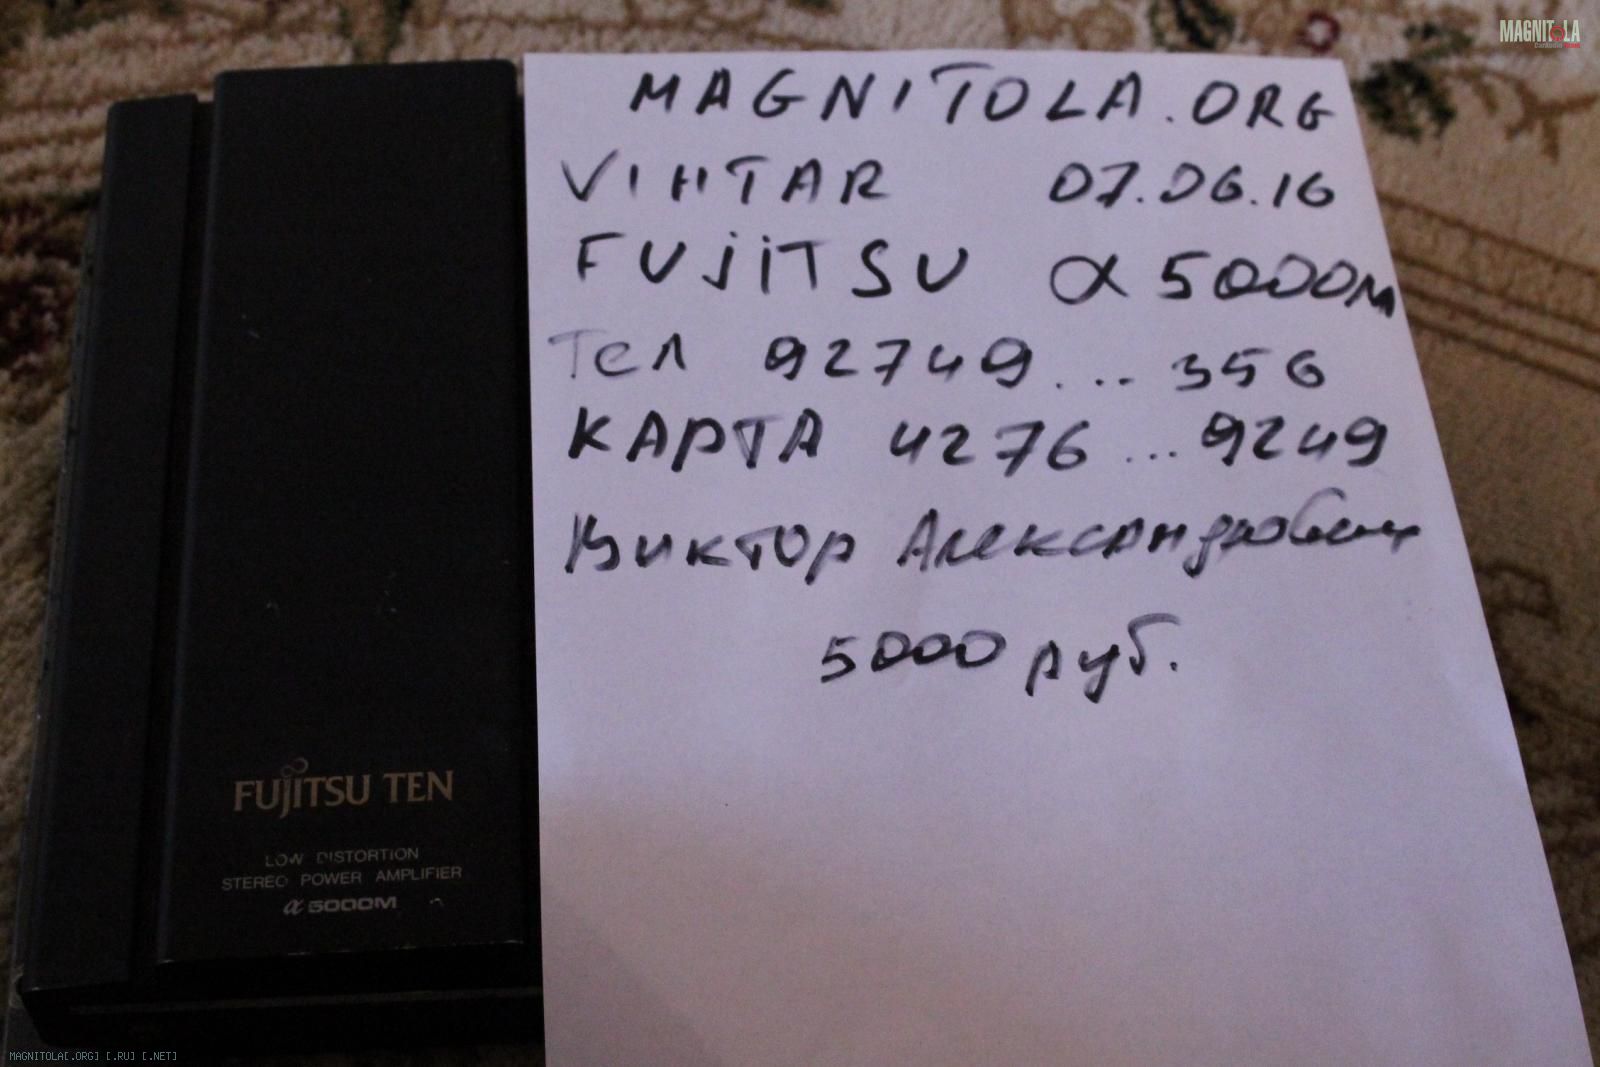 MAGNITOLA
CarAudio Forum
MAGNITOLA.ORG
VIHTAR 07.06.16
FUJITSU α 5000M
Тел 92749... 356
КАРТА 4276 ... 9249
Виктор Александрович
5000 руб.
FUJITSU TEN
LOW DISTORTION
STEREO POWER AMPLIFIER
α 5000M
MAGNITOLA[.ORG] [.RU] [.NET]